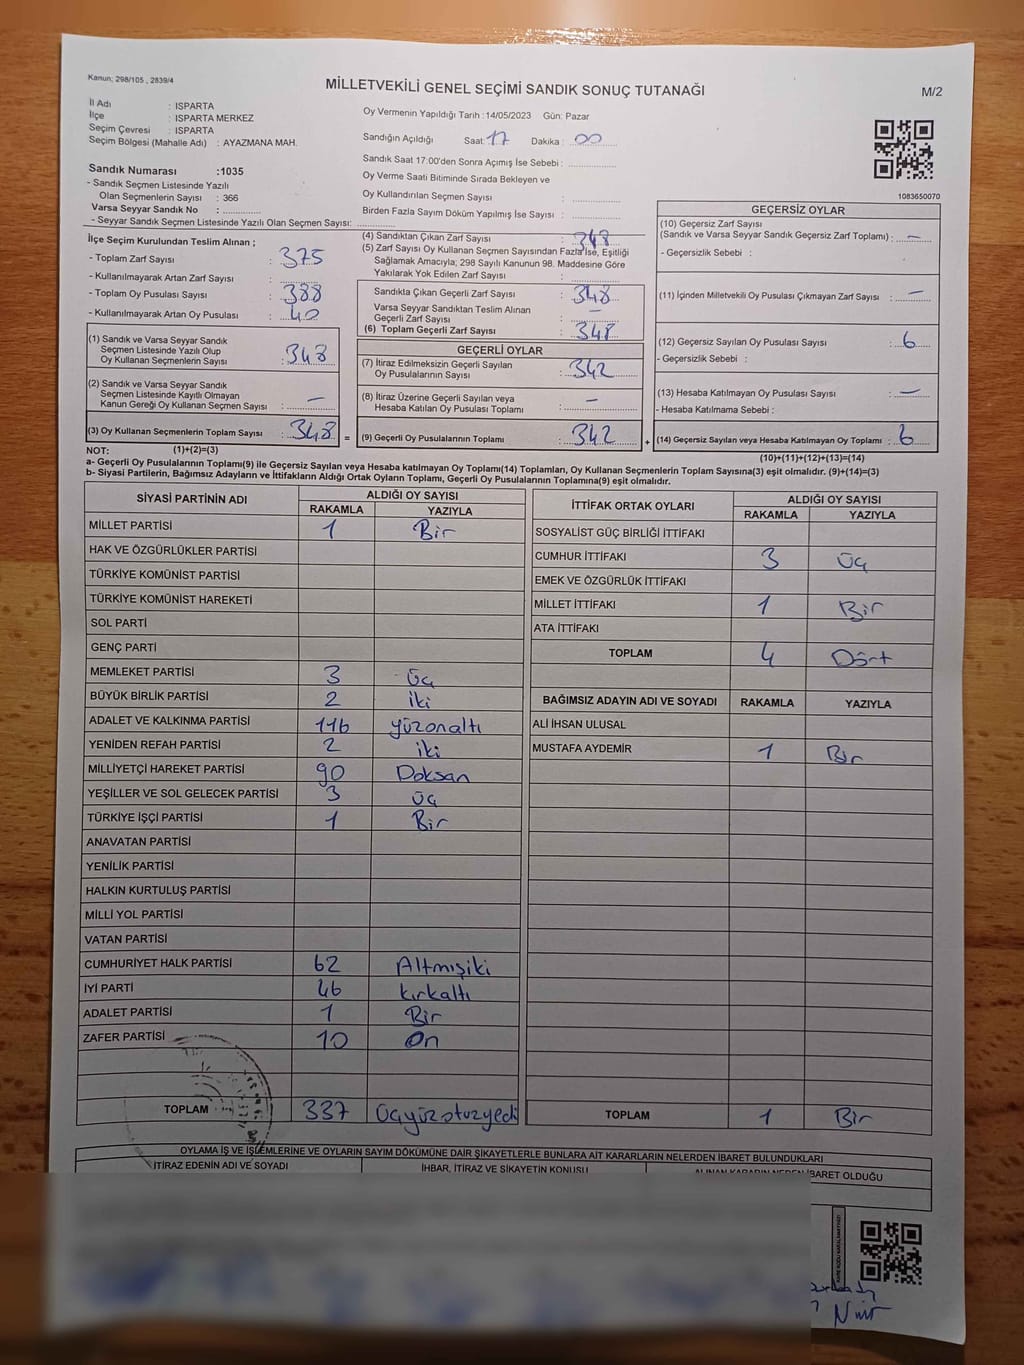 Kanun; 298/105 , 2839/4
MİLLETVEKİLİ GENEL SEÇİMİ SANDIK SONUÇ TUTANAĞI
M/2
İl Adı : ISPARTA
İlçe : ISPARTA MERKEZ
Seçim Çevresi : ISPARTA
Seçim Bölgesi (Mahalle Adı) : AYAZMANA MAH.
Oy Vermenin Yapıldığı Tarih : 14/05/2023 Gün: Pazar
Sandığın Açıldığı Saat: 17 Dakika : 00
Sandık Saat 17:00'den Sonra Açımış İse Sebebi :
Oy Verme Saati Bitiminde Sırada Bekleyen ve
Oy Kullandırılan Seçmen Sayısı :
Birden Fazla Sayım Döküm Yapılmış İse Sayısı :
1083650070
Sandık Numarası :1035
- Sandık Seçmen Listesinde Yazılı
Olan Seçmenlerin Sayısı : 366
Varsa Seyyar Sandık No :
- Seyyar Sandık Seçmen Listesinde Yazılı Olan Seçmen Sayısı:
İlçe Seçim Kurulundan Teslim Alınan ;
- Toplam Zarf Sayısı : 375
- Kullanılmayarak Artan Zarf Sayısı :
- Toplam Oy Pusulası Sayısı : 388
- Kullanılmayarak Artan Oy Pusulası : 40
(1) Sandık ve Varsa Seyyar Sandık
Seçmen Listesinde Yazılı Olup
Oy Kullanan Seçmenlerin Sayısı : 348
(2) Sandık ve Varsa Seyyar Sandık
Seçmen Listesinde Kayıtlı Olmayan
Kanun Gereği Oy Kullanan Seçmen Sayısı : –
(3) Oy Kullanan Seçmenlerin Toplam Sayısı : 348 =
(1)+(2)=(3)
(4) Sandıktan Çıkan Zarf Sayısı : 348
(5) Zarf Sayısı Oy Kullanan Seçmen Sayısından Fazla İse, Eşitliği
Sağlamak Amacıyla; 298 Sayılı Kanunun 98. Maddesine Göre
Yakılarak Yok Edilen Zarf Sayısı :
Sandıkta Çıkan Geçerli Zarf Sayısı : 348
Varsa Seyyar Sandıktan Teslim Alınan
Geçerli Zarf Sayısı : –
(6) Toplam Geçerli Zarf Sayısı : 348
GEÇERLİ OYLAR
(7) İtiraz Edilmeksizin Geçerli Sayılan
Oy Pusulalarının Sayısı : 342
(8) İtiraz Üzerine Geçerli Sayılan veya
Hesaba Katılan Oy Pusulası Toplamı : –
(9) Geçerli Oy Pusulalarının Toplamı : 342 +
GEÇERSİZ OYLAR
(10) Geçersiz Zarf Sayısı
(Sandık ve Varsa Seyyar Sandık Geçersiz Zarf Toplamı) : –
- Geçersizlik Sebebi :
(11) İçinden Milletvekili Oy Pusulası Çıkmayan Zarf Sayısı : –
(12) Geçersiz Sayılan Oy Pusulası Sayısı : 6
- Geçersizlik Sebebi :
(13) Hesaba Katılmayan Oy Pusulası Sayısı : –
- Hesaba Katılmama Sebebi :
(14) Geçersiz Sayılan veya Hesaba Katılmayan Oy Toplamı : 6
(10)+(11)+(12)+(13)=(14)
NOT:
a- Geçerli Oy Pusulalarının Toplamı(9) ile Geçersiz Sayılan veya Hesaba katılmayan Oy Toplamı(14) Toplamları, Oy Kullanan Seçmenlerin Toplam Sayısına(3) eşit olmalıdır. (9)+(14)=(3)
b- Siyasi Partilerin, Bağımsız Adayların ve İttifakların Aldığı Ortak Oyların Toplamı, Geçerli Oy Pusulalarının Toplamına(9) eşit olmalıdır.
SİYASİ PARTİNİN ADI ALDIĞI OY SAYISI
RAKAMLA YAZIYLA
MİLLET PARTİSİ 1 Bir
HAK VE ÖZGÜRLÜKLER PARTİSİ
TÜRKİYE KOMÜNİST PARTİSİ
TÜRKİYE KOMÜNİST HAREKETİ
SOL PARTİ
GENÇ PARTİ
MEMLEKET PARTİSİ 3 Üç
BÜYÜK BİRLİK PARTİSİ 2 iki
ADALET VE KALKINMA PARTİSİ 116 yüzonaltı
YENİDEN REFAH PARTİSİ 2 iki
MİLLİYETÇİ HAREKET PARTİSİ 90 Doksan
YEŞİLLER VE SOL GELECEK PARTİSİ 3 Üç
TÜRKİYE İŞÇİ PARTİSİ 1 Bir
ANAVATAN PARTİSİ
YENİLİK PARTİSİ
HALKIN KURTULUŞ PARTİSİ
MİLLİ YOL PARTİSİ
VATAN PARTİSİ
CUMHURİYET HALK PARTİSİ 62 Altmışiki
İYİ PARTİ 46 kırkaltı
ADALET PARTİSİ 1 Bir
ZAFER PARTİSİ 10 On
TOPLAM 337 Üçyüzotuzyedi
İTTİFAK ORTAK OYLARI ALDIĞI OY SAYISI
RAKAMLA YAZIYLA
SOSYALİST GÜÇ BİRLİĞİ İTTİFAKI
CUMHUR İTTİFAKI 3 Üç
EMEK VE ÖZGÜRLÜK İTTİFAKI
MİLLET İTTİFAKI 1 Bir
ATA İTTİFAKI
TOPLAM 4 Dört
BAĞIMSIZ ADAYIN ADI VE SOYADI RAKAMLA YAZIYLA
ALİ İHSAN ULUSAL
MUSTAFA AYDEMİR 1 Bir
TOPLAM 1 Bir
OYLAMA İŞ VE İŞLEMLERİNE VE OYLARIN SAYIM DÖKÜMÜNE DAİR ŞİKAYETLERLE BUNLARA AİT KARARLARIN NELERDEN İBARET BULUNDUKLARI
İTİRAZ EDENİN ADI VE SOYADI İHBAR, İTİRAZ VE ŞİKAYETİN KONUSU ALINAN KARARIN NEDEN İBARET OLDUĞU